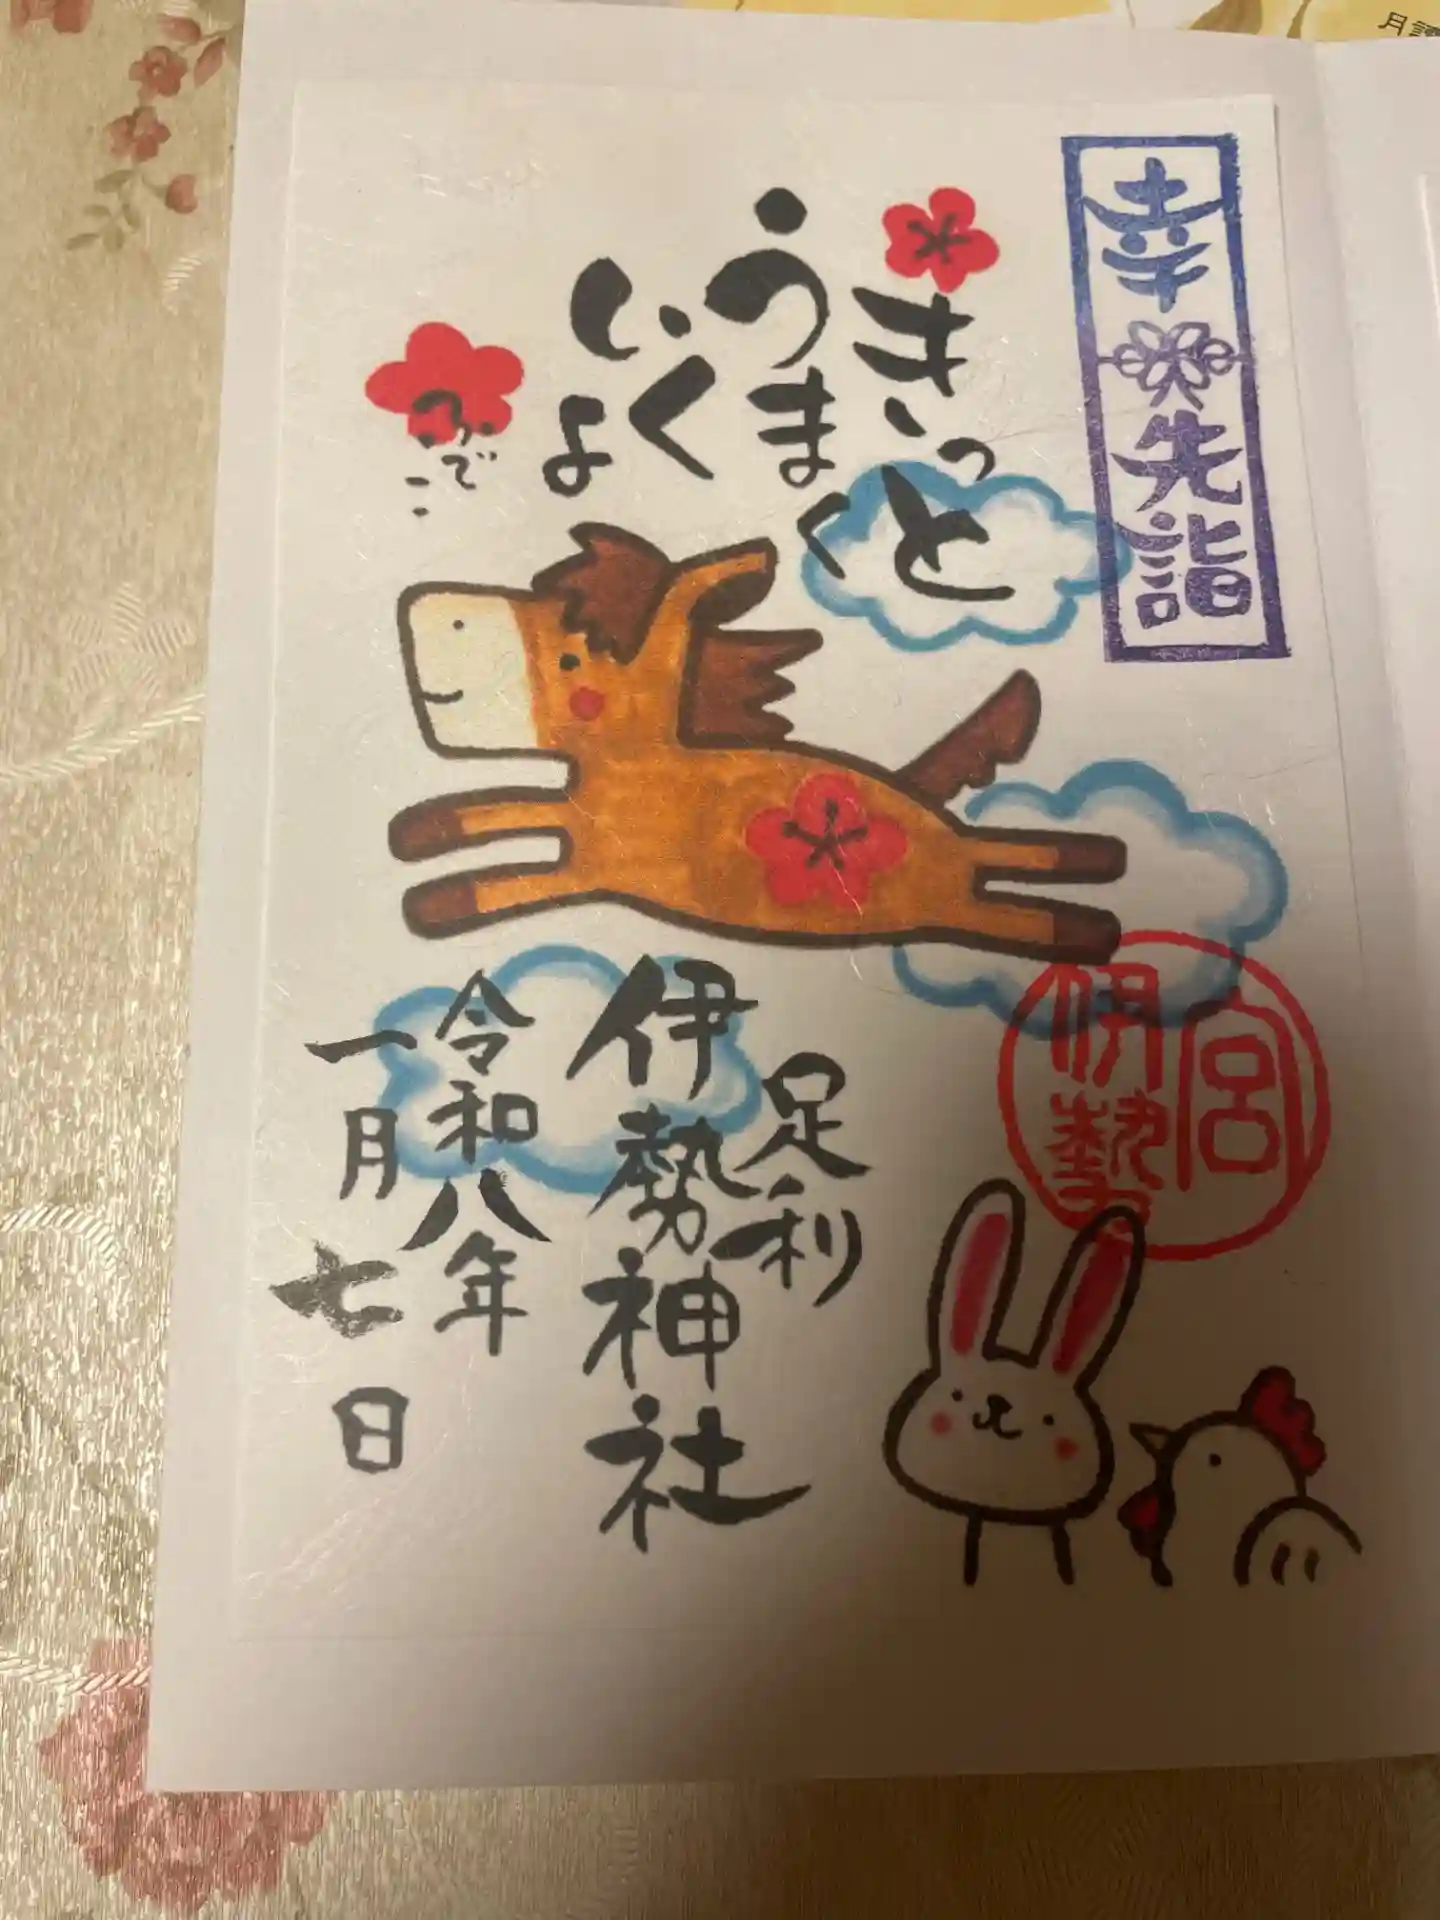 幸先詣
きっと
うまく
いくよ
足利
伊勢神社
令和八年
一月七日
伊勢宮
月